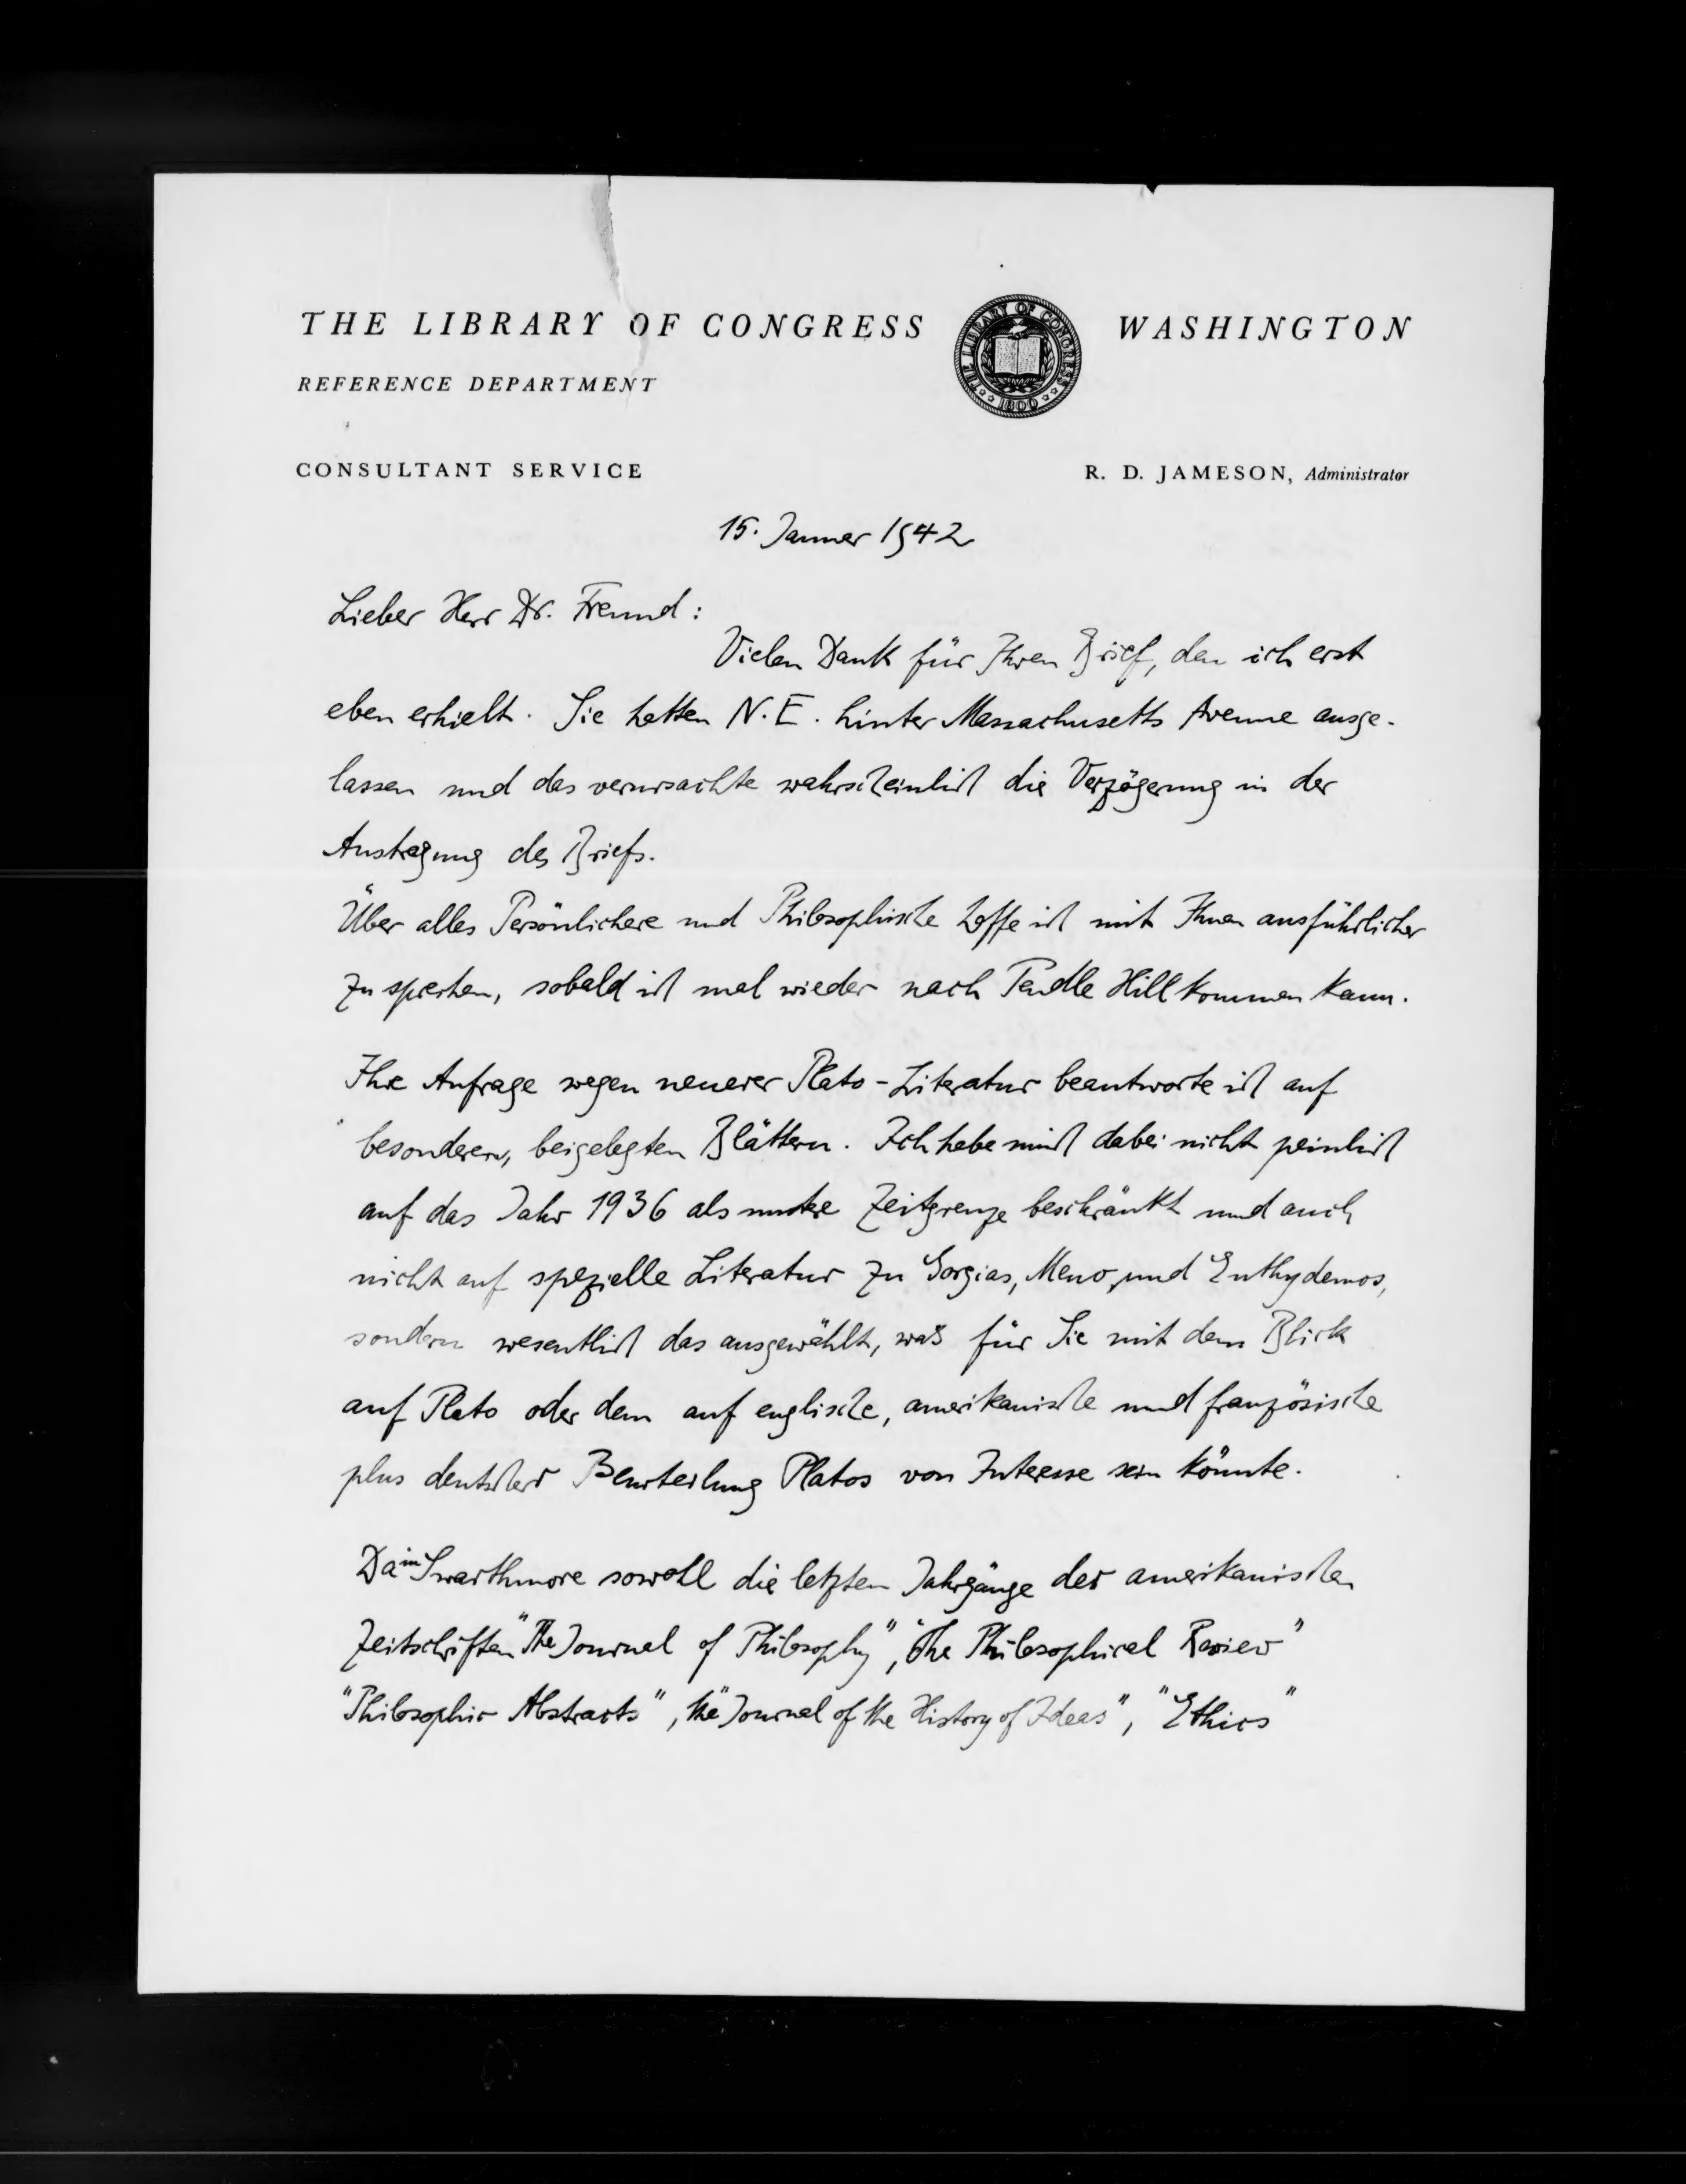 THE LIBRARY OF CONGRESS WASHINGTON
THE LIBRARY OF CONGRESS
1800
REFERENCE DEPARTMENT
CONSULTANT SERVICE R. D. JAMESON, Administrator
15. Januer 1942
Lieber Herr Dr. Freund:
Vielen Dank für Ihren Brief, den ich erst
eben erhielt. Sie hatten N.E. hinter Massachusetts Avenue ausge-
lassen und das verursachte wahrscheinlich die Verzögerung in der
Austragung des Briefs.
Über alles Persönlichere und Philosophische hoffe ich mit Ihnen ausführlicher
zu sprechen, sobald ich mal wieder nach Pendle Hill kommen kann.
Ihre Anfrage wegen neuerer Plato-Literatur beantworte ich auf
besonderen, beigelegten Blättern. Ich habe mich dabei nicht peinlich
auf das Jahr 1936 als untere Zeitgrenze beschränkt und auch
nicht auf spezielle Literatur zu Gorgias, Meno, und Euthydemos,
sondern wesentlich das ausgewählt, was für Sie mit dem Blick
auf Plato oder dem auf englische, amerikanische und französische
plus deutscher Beurteilung Platos von Interesse sein könnte.
Da in Swarthmore sowohl die letzten Jahrgänge der amerikanischen
Zeitschriften "The Journal of Philosophy", "The Philosophical Review"
"Philosophic Abstracts", the "Journal of the History of Ideas", "Ethics"